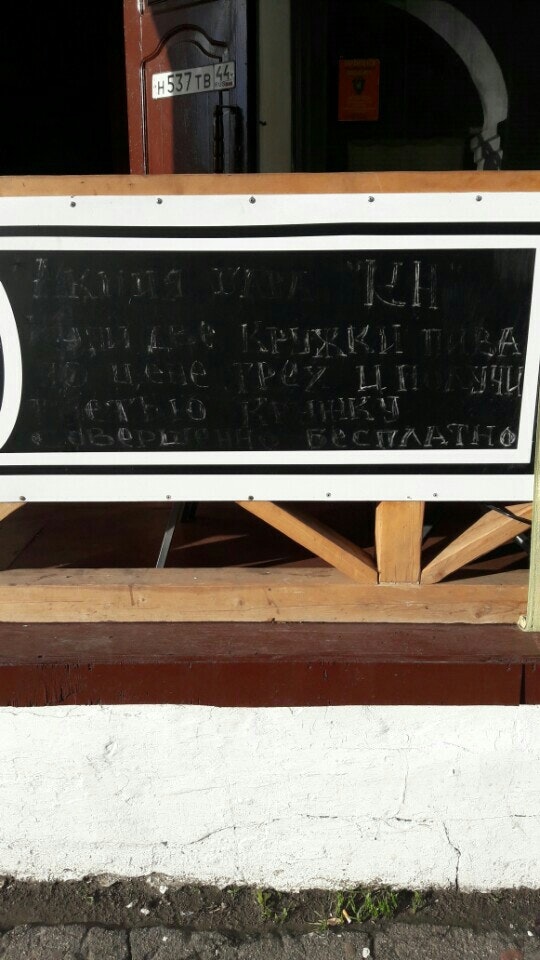 Н537ТВ 44
Акция пара "КН"
Купи две кружки пива
по цене трёх и получи
третью кружку
совершенно бесплатно